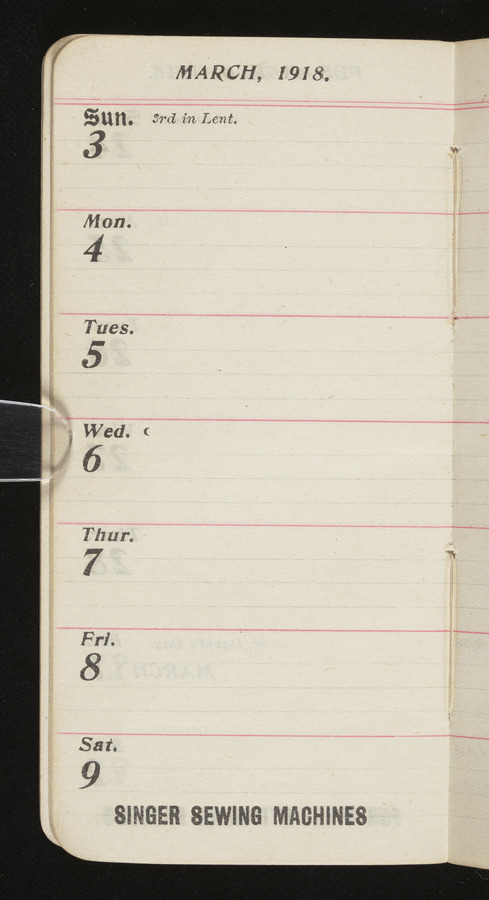 MARCH, 1918.
Sun. 3rd in Lent.
3
Mon.
4
Tues.
5
Wed. ☾
6
Thur.
7
Fri.
8
Sat.
9
SINGER SEWING MACHINES